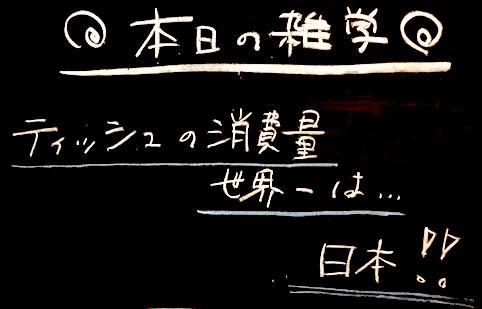 本日の雑学
ティッシュの消費量
世界一は…
日本!!